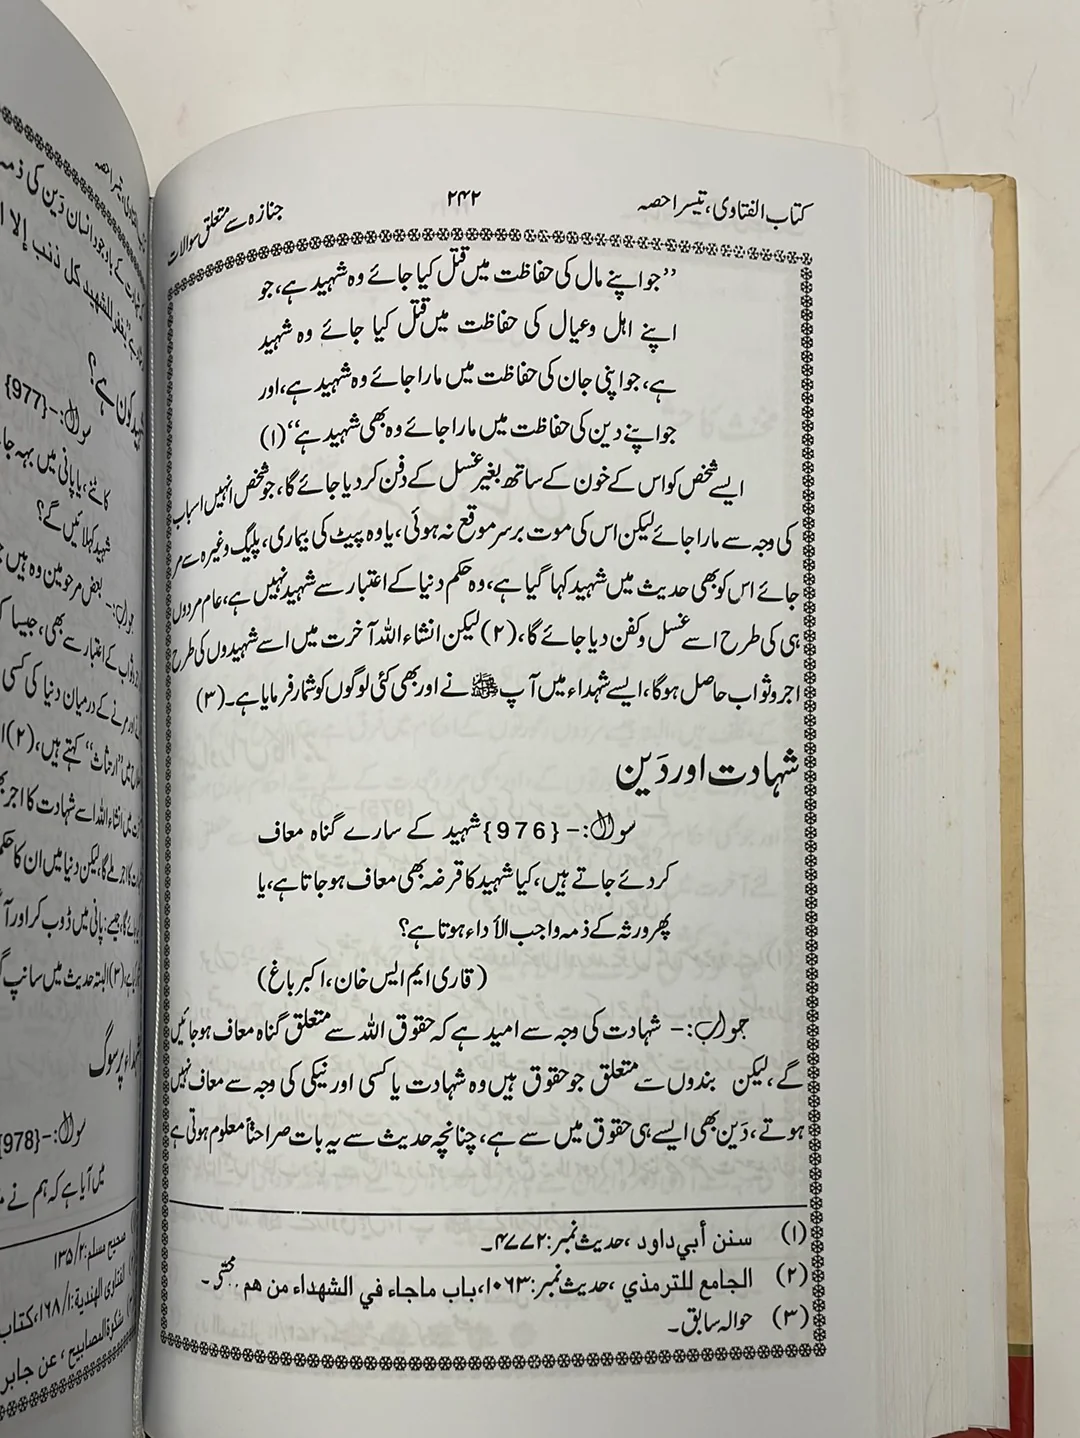 کتاب الفتاوی، تیسرا حصہ ۲۴۲ جنازہ سے متعلق سوالات
’’جو اپنے مال کی حفاظت میں قتل کیا جائے وہ شہید ہے، جو
اپنے اہل و عیال کی حفاظت میں قتل کیا جائے وہ شہید
ہے، جو اپنی جان کی حفاظت میں مارا جائے وہ شہید ہے، اور
جو اپنے دین کی حفاظت میں مارا جائے وہ بھی شہید ہے‘‘ (۱)
ایسے شخص کو اس کے خون کے ساتھ بغیر غسل کے دفن کر دیا جائے گا، جو شخص انہیں اسباب
کی وجہ سے مارا جائے لیکن اس کی موت بر سر موقع نہ ہوئی، یا وہ پیٹ کی بیماری، پلیگ وغیرہ سے مر
جائے اس کو بھی حدیث میں شہید کہا گیا ہے، وہ حکم دنیا کے اعتبار سے شہید نہیں ہے، عام مردوں
ہی کی طرح اسے غسل و کفن دیا جائے گا، (۲) لیکن انشاء اللہ آخرت میں اسے شہیدوں کی طرح
اجر و ثواب حاصل ہوگا، ایسے شہداء میں آپ ﷺ نے اور بھی کئی لوگوں کو شمار فرمایا ہے۔ (۳)
شہادت اور دَین
سوال:- {976} شہید کے سارے گناہ معاف
کر دئے جاتے ہیں، کیا شہید کا قرضہ بھی معاف ہو جاتا ہے، یا
پھر ورثہ کے ذمہ واجب الأداء ہوتا ہے؟
(قاری ایم ایس خان، اکبر باغ)
جواب:- شہادت کی وجہ سے امید ہے کہ حقوق اللہ سے متعلق گناہ معاف ہو جائیں
گے، لیکن بندوں سے متعلق جو حقوق ہیں وہ شہادت یا کسی اور نیکی کی وجہ سے معاف نہیں
ہوتے، دَین بھی ایسے ہی حقوق میں سے ہے، چنانچہ حدیث سے یہ بات صراحتاً معلوم ہوتی ہے
(۱) سنن أبي داود، حدیث نمبر: ۴۷۷۲۔
(۲) الجامع للترمذي، حدیث نمبر: ۱۰۶۳، باب ماجاء في الشهداء من هم ۔ محشی۔
(۳) حوالہ سابق۔
شہید کون ہے؟
سوال:- {977}
شہید کہلائیں گے؟
شہداء پر سوگ
سوال:- {978}
میں آیا ہے کہ ہم نے
صحیح مسلم: ۱۳۵/۲
الفتاوی الهندية: ۱۶۸/۱، کتاب
مشكوة المصابيح، عن جابر